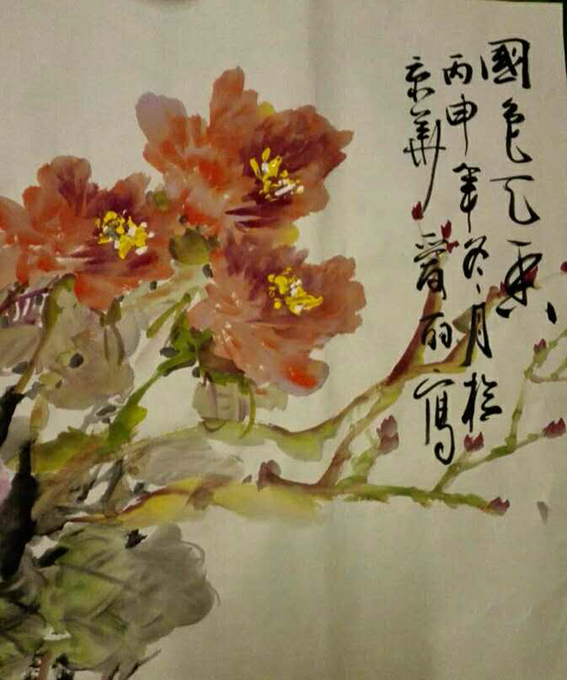 國色天香
丙申年冬月於
京華 愛丽寫